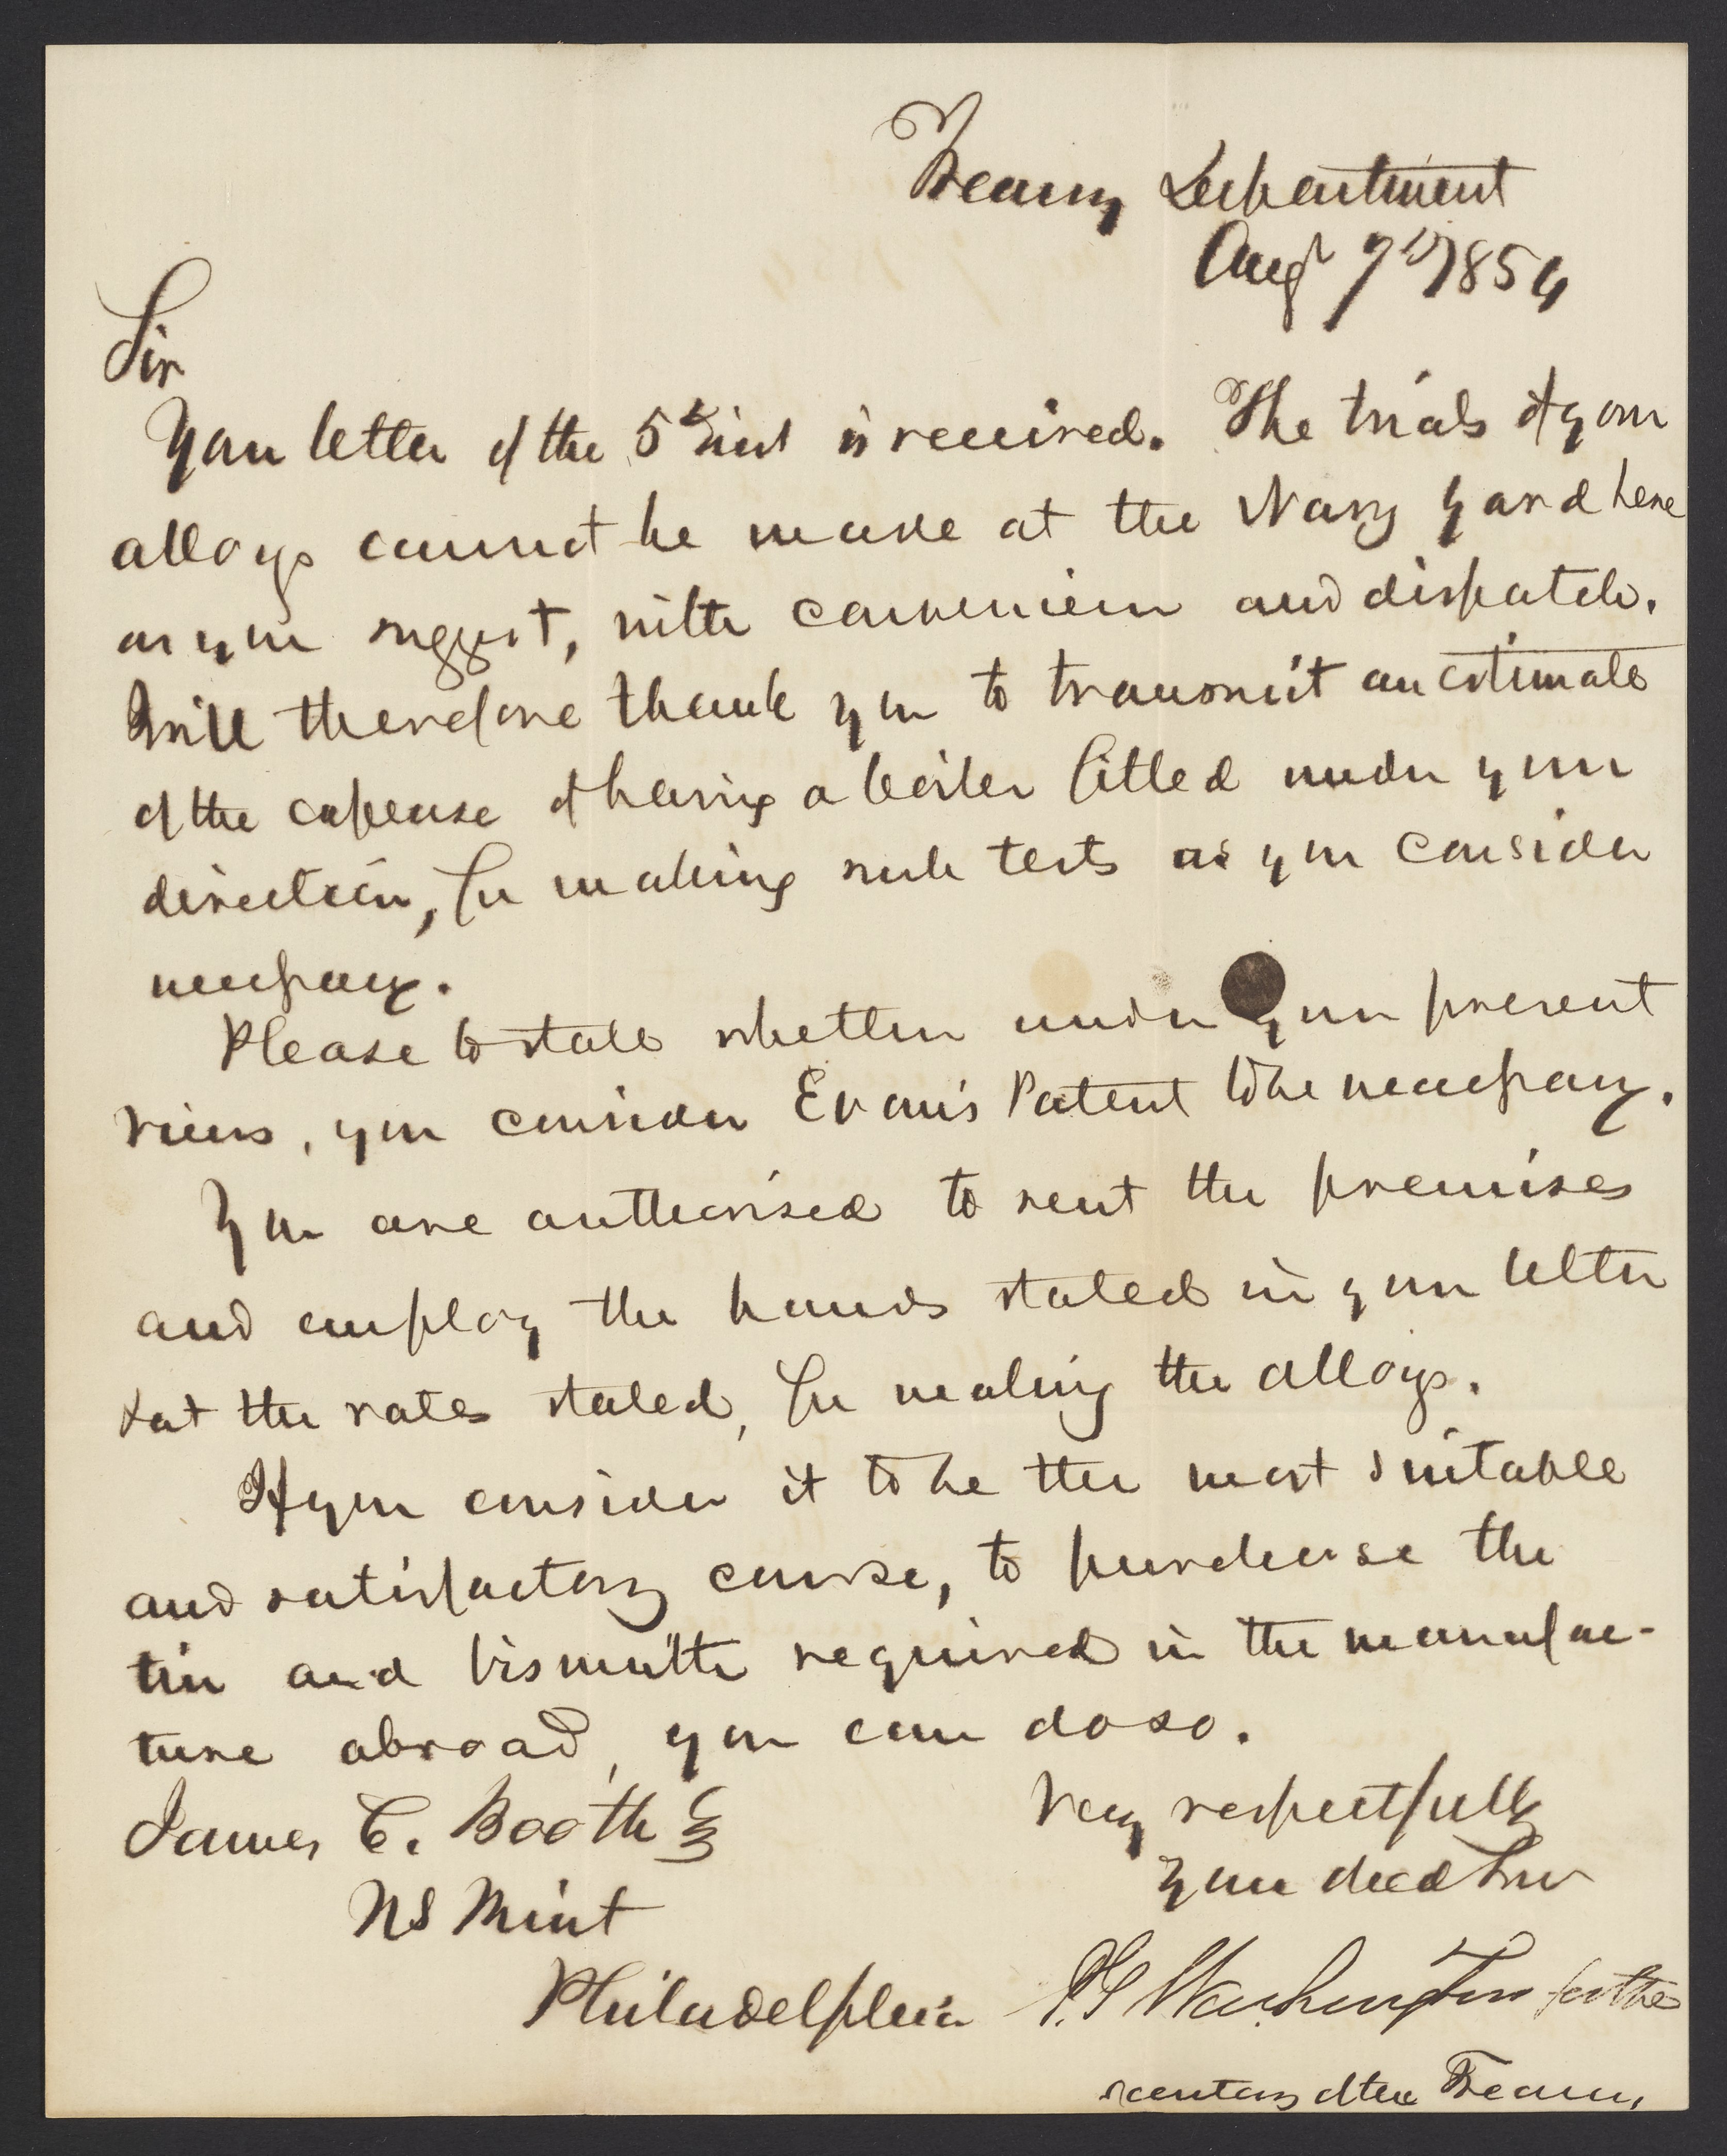 Treasury Department
Augt 7th 1854
Sir
Your letter of the 5th inst is received. The trials of your
alloys cannot be made at the Navy Yard here
as you suggest, with convenience and dispatch.
I will therefore thank you to transmit an estimate
of the expense of having a boiler fitted under your
direction, for making such tests as you consider
necessary.
Please to state whether under your present
views, you consider Evans's Patent to be necessary.
You are authorised to rent the premises
and employ the hands stated in your letter
& at the rates stated, for making the alloys.
If you consider it to be the most suitable
and satisfactory course, to purchase the
tin and bismuth required in the manufac-
ture abroad, you can do so.
James C. Booth Esq
US Mint
Philadelphia
Very respectfully
Your obed Serv
P G Washington for the
secretary of the Treasury